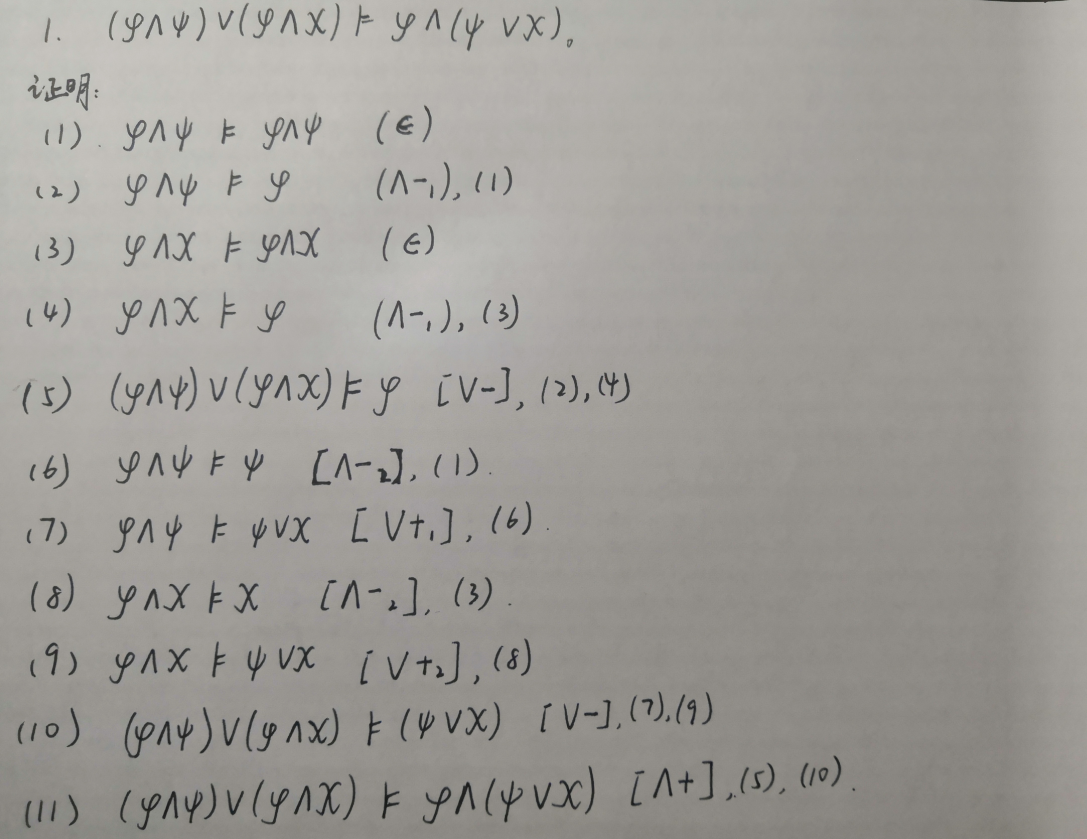 1. (φ∧ψ)∨(φ∧χ) ⊨ φ∧(ψ∨χ)。
证明:
(1). φ∧ψ ⊨ φ∧ψ (∈)
(2) φ∧ψ ⊨ φ (∧-₁), (1)
(3) φ∧χ ⊨ φ∧χ (∈)
(4) φ∧χ ⊨ φ (∧-₁), (3)
(5) (φ∧ψ)∨(φ∧χ) ⊨ φ [∨-], (2), (4)
(6) φ∧ψ ⊨ ψ [∧-₂], (1).
(7) φ∧ψ ⊨ ψ∨χ [∨+₁], (6).
(8) φ∧χ ⊨ χ [∧-₂], (3).
(9) φ∧χ ⊨ ψ∨χ [∨+₂], (8)
(10) (φ∧ψ)∨(φ∧χ) ⊨ (ψ∨χ) [∨-], (7), (9)
(11) (φ∧ψ)∨(φ∧χ) ⊨ φ∧(ψ∨χ) [∧+], (5), (10).